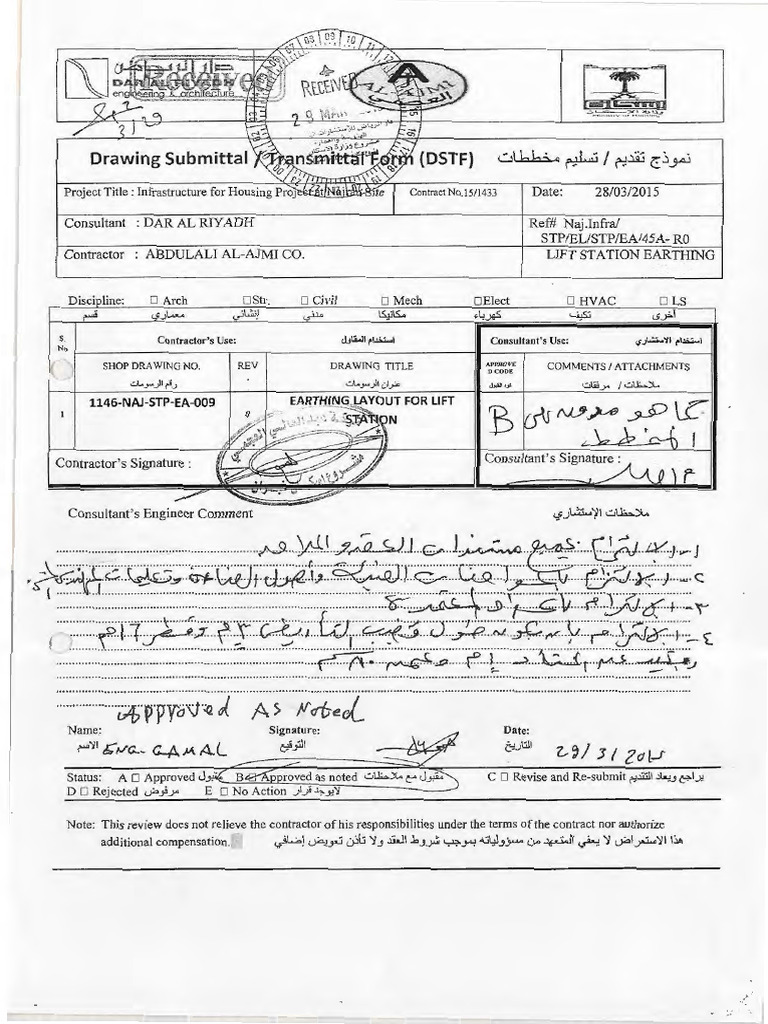 دار الرياض
DAR AL RIYADH
engineering & architecture
Received
RECEIVED
29 MAR
AL AJMI
العجمي
3/29
Drawing Submittal / Transmittal Form (DSTF) نموذج تقديم / تسليم مخططات
Project Title : Infrastructure for Housing Project at Najran Site Contract No.15/1433 Date: 28/03/2015
Consultant : DAR AL RIYADH Ref# Naj.Infra/
STP/EL/STP/EA/45A- R0
Contractor : ABDULALI AL-AJMI CO. LIFT STATION EARTHING
Discipline: □ Arch □Str. □ Civil □ Mech □Elect □ HVAC □ LS
قسم معماري إنشائي مدني مكانيكا كهرباء تكيف أخرى
S. No Contractor's Use: استخدام المقاول Consultant's Use: استخدام الاستشاري
SHOP DRAWING NO. REV DRAWING TITLE APPROVE D CODE COMMENTS / ATTACHMENTS
رقم الرسومات عنوان الرسومات ملاحظات / مرفقات
1 1146-NAJ-STP-EA-009 0 EARTHING LAYOUT FOR LIFT STATION B كما هو مدون على
المخطط
Contractor's Signature : Consultant's Signature :
Consultant's Engineer Comment ملاحظات الإستشاري
١- الالتزام بجميع مستندات العقد والملاحق
٢- الالتزام بالمواصفات الفنية وأصول الصناعة وتعليمات المهندس
٣- الالتزام بالمواد المعتمدة
٤- الالتزام بأن يكون طول قضيب التأريض ٣م وقطر 16مم
Approved As Noted
Name: Signature: Date:
الاسم ENG. GAMAL التوقيع التاريخ 29/3/2015
Status: A □ Approved مقبول B☑ Approved as noted مقبول مع ملاحظات C □ Revise and Re-submit يراجع ويعاد التقديم
D □ Rejected مرفوض E □ No Action لايوجد قرار
Note: This review does not relieve the contractor of his responsibilities under the terms of the contract nor authorize
additional compensation. هذا الاستعراض لا يعفي المتعهد من مسؤولياته بموجب شروط العقد ولا تأذن تعويض إضافي